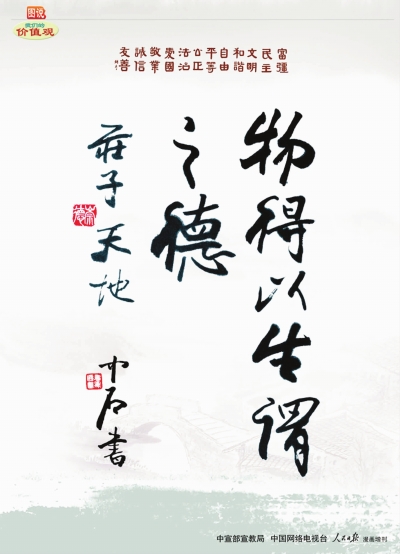 图说
我们的
价值观
富强
民主
文明
和谐
自由
平等
公正
法治
爱國
敬業
誠信
友善
物得以生謂
之德
莊子 天地
中石書
中宣部宣教局 中国网络电视台 人民日报 漫画增刊